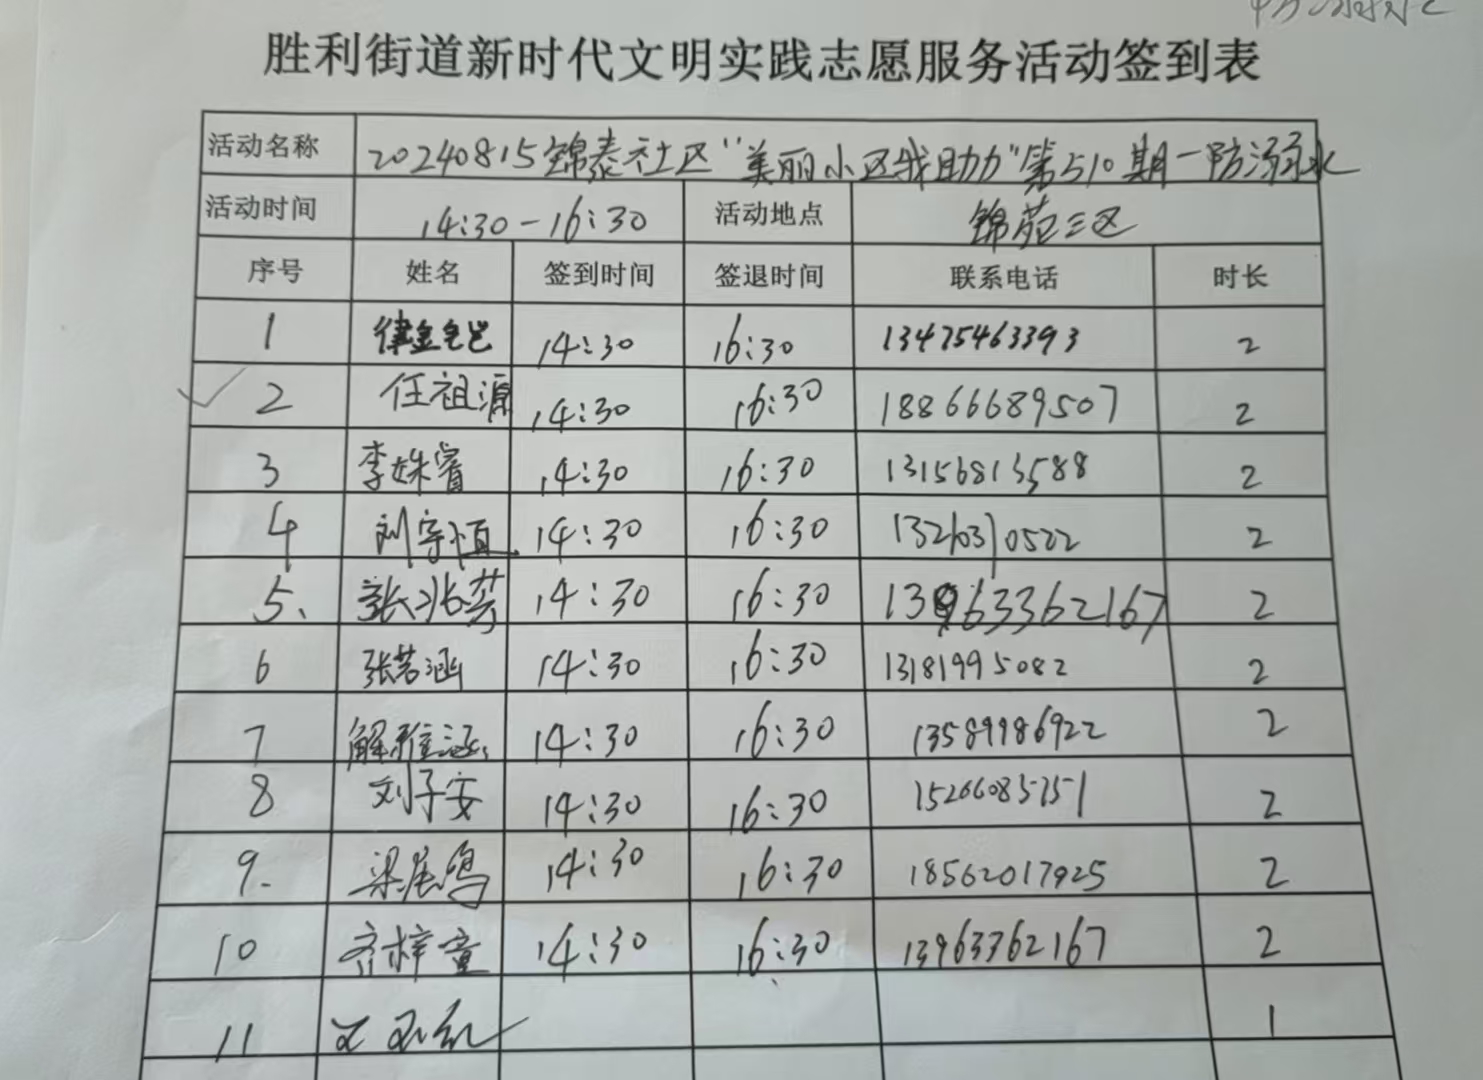 胜利街道新时代文明实践志愿服务活动签到表
活动名称 20240815锦泰社区"美丽小区我助力"第510期一防溺水
活动时间 14:30-16:30 活动地点 锦苑三区
序号 姓名 签到时间 签退时间 联系电话 时长
1 14:30 16:30 13475463393 2
2 任祖源 14:30 16:30 18866689507 2
3 李姝睿 14:30 16:30 13156813588 2
4 刘宇恒 14:30 16:30 2
5、 14:30 16:30 13963362167 2
6 张若涵 14:30 16:30 13181995082 2
7 解雅涵 14:30 16:30 13589986922 2
8 刘子安 14:30 16:30 15266085751 2
9. 14:30 16:30 18562017925 2
10 齐梓童 14:30 16:30 13963362167 2
11 1